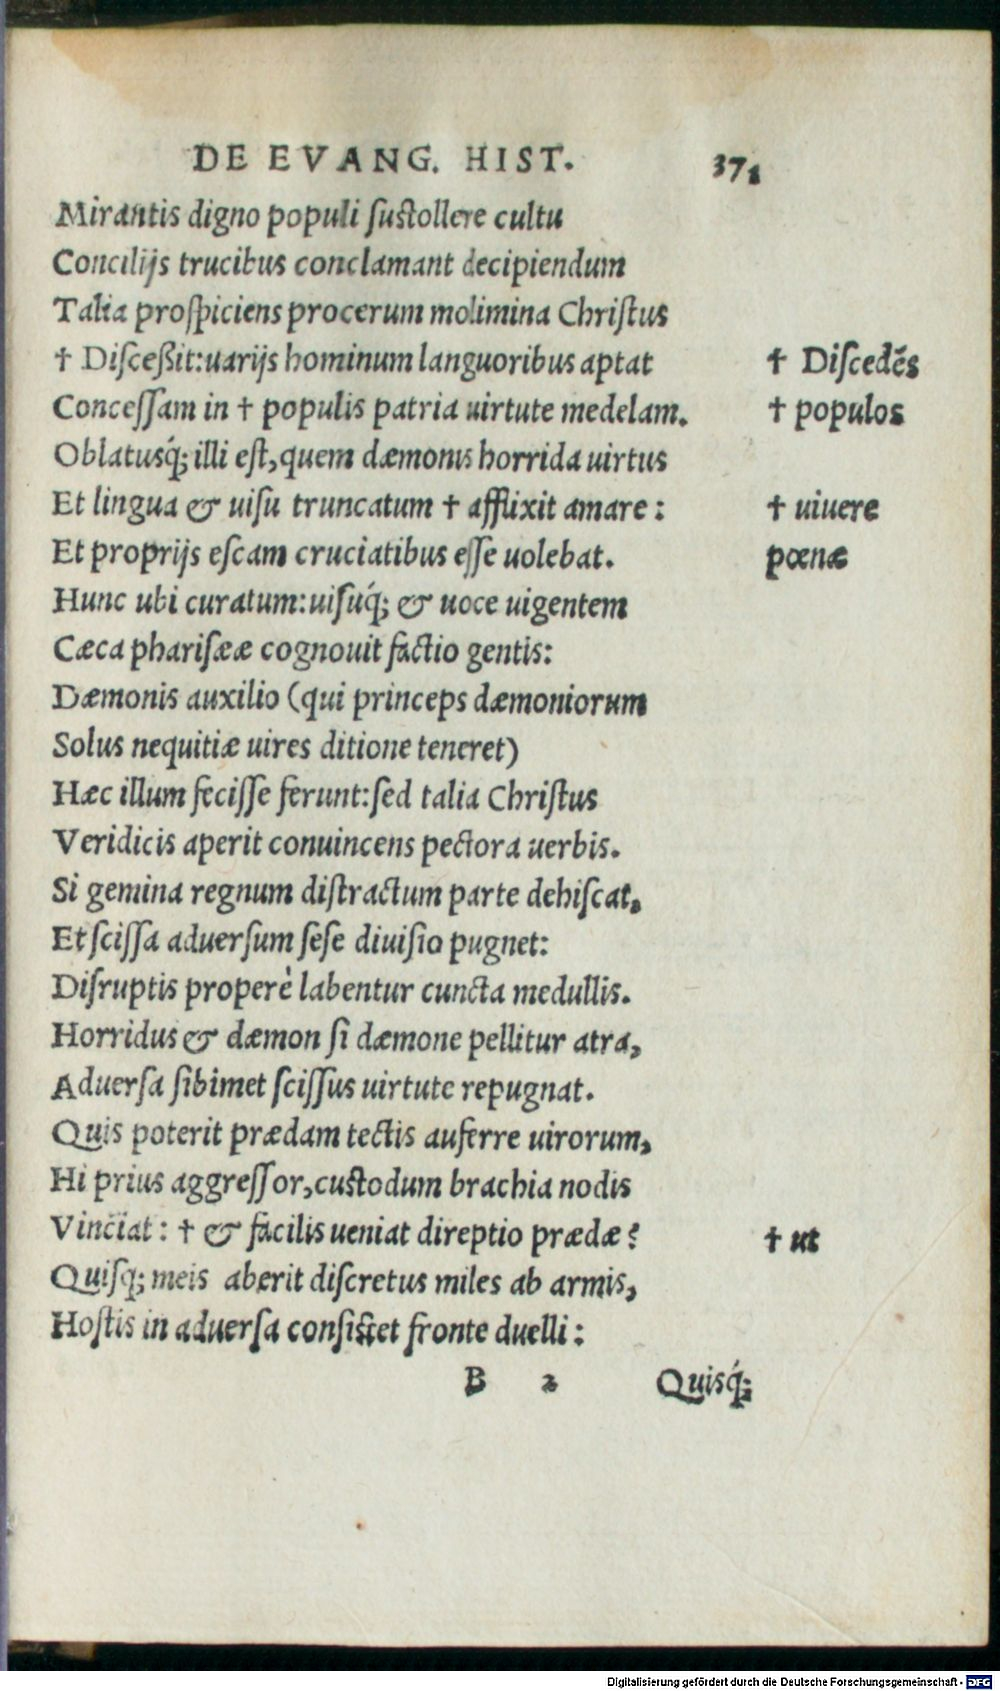 DE EVANG. HIST. 371
Mirantis digno populi sustollere cultu
Concilijs trucibus conclamant decipiendum
Talia prospiciens procerum molimina Christus
† Disceßit:uarijs hominum languoribus aptat † Discedēs
Concessam in † populis patria uirtute medelam. † populos
Oblatusq́; illi est, quem dæmonis horrida uirtus
Et lingua & uisu truncatum † afflixit amare : † uiuere
Et proprijs escam cruciatibus esse uolebat. pœnæ
Hunc ubi curatum:uisuq́; & uoce uigentem
Cæca pharisææ cognouit factio gentis:
Dæmonis auxilio (qui princeps dæmoniorum
Solus nequitiæ uires ditione teneret)
Hæc illum fecisse ferunt:sed talia Christus
Veridicis aperit conuincens pectora uerbis.
Si gemina regnum distractum parte dehiscat,
Et scissa aduersum sese diuisio pugnet:
Disruptis properè labentur cuncta medullis.
Horridus & dæmon si dæmone pellitur atra,
Aduersa sibimet scissus uirtute repugnat.
Quis poterit prædam tectis auferre uirorum,
Hi prius aggressor, custodum brachia nodis
Vinciat : † & facilis ueniat direptio prædæ? † ut
Quisq; meis aberit discretus miles ab armis,
Hostis in aduersa consistet fronte duelli :
B 2 Quisq́;
Digitalisierung gefördert durch die Deutsche Forschungsgemeinschaft - DFG